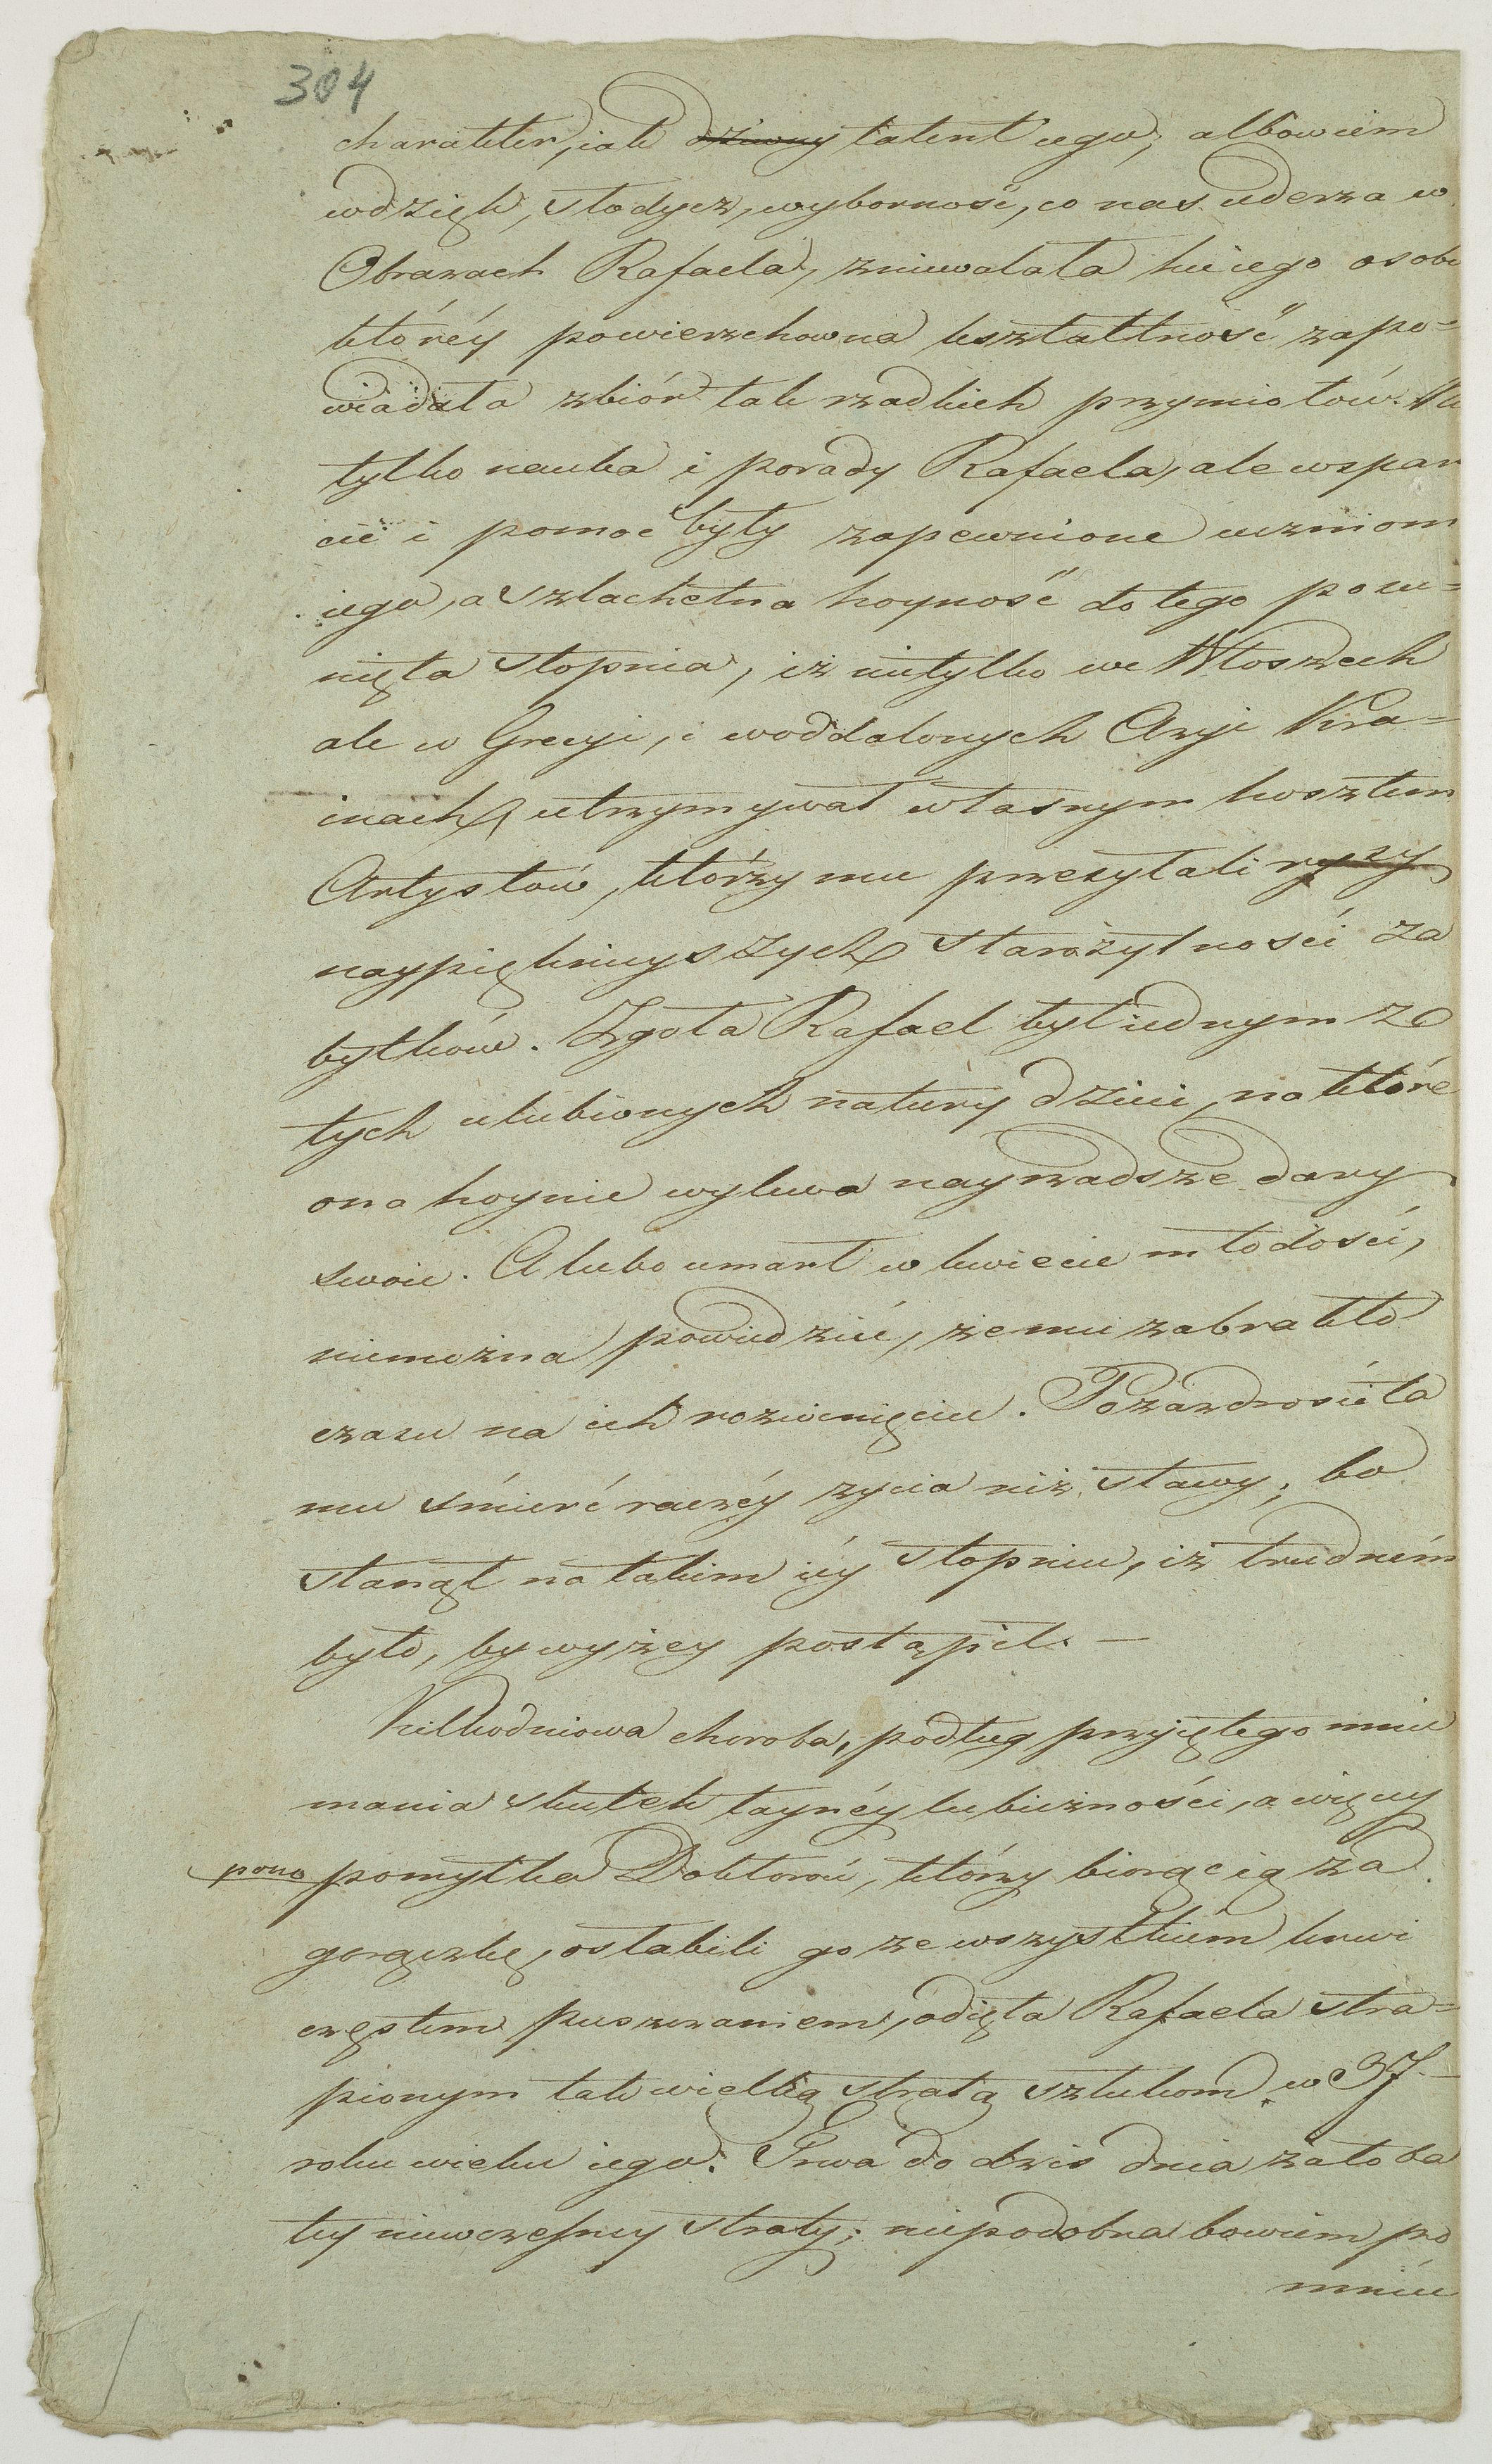 304
charakter, iak dziwny talent iego; albowiem
wdzięk, słodycz, wyborność, co nas uderza w
Obrazach Rafaela, zniewalała ku iego osobe
któréy powierzchowna kształtność zapo=
wiadała zbiór tak rzadkich przymiotów. Nie
tylko nauka i porady Rafaela, ale wspar
cie i pomoc były zapewnione uczniom
iego, a szlachetna hoyność do tego posu=
nięta stopnia, iż nietylko we Włoszech
ale w Grecyi, i w oddalonych Azyi Kra=
inach, utrzymywał własnym kosztem
Artystów, którzy mu przesyłali ryzy
naypięknieyszych starożytności za
bytków. Zgoła Rafael był iednym ze
tych ulubionych natury dzieci, na które
ona hoynie wylewa nayrzadsze dary
swoie. A lubo umarł w kwiecie młodości,
niemożna powiedzieć, że mu zabrakło
czasu na ich rozwinięcie. Pozazdrościła
mu śmierć raczéy życia niż sławy; bo
stanął na takim iéy stopniu, iż trudném
było, by wyżey postąpił. —
Kilkodniowa choroba, podług przyiętego mnie
mania skutek taynéy lubieżności, a więcey
pono pomyłka Doktorów, którzy biorąc ią za
gorączkę, osłabili go ze wszystkiém krwi
częstem puszczaniem, odięła Rafaela stra=
pionym tak wielką stratą sztukom, w 37.
roku wieku iego. Trwa do dziś dnia żałoba
tey niewczesney straty; niepodobna bowiem po
mnieć